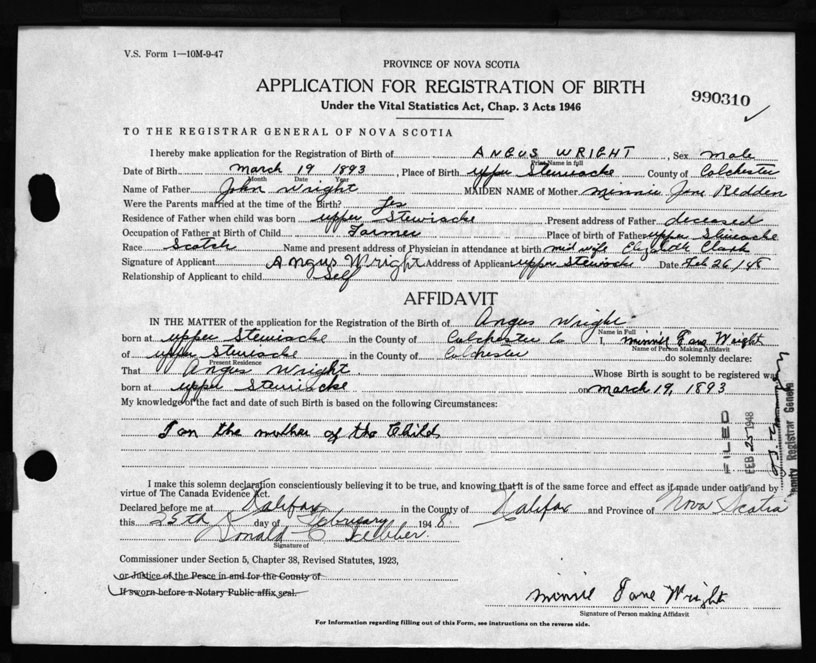 V.S. Form 1—10M-9-47
PROVINCE OF NOVA SCOTIA
APPLICATION FOR REGISTRATION OF BIRTH
Under the Vital Statistics Act, Chap. 3 Acts 1946
990310
TO THE REGISTRAR GENERAL OF NOVA SCOTIA
I hereby make application for the Registration of Birth of ANGUS WRIGHT, Sex male
Print Name in full
Date of Birth March 19 1893, Place of Birth upper Stewiacke County of Colchester
Month Date Year
Name of Father John Wright MAIDEN NAME of Mother Minnie Jane Redden
Were the Parents married at the time of the Birth? Yes
Residence of Father when child was born upper Stewiacke Present address of Father deceased
Occupation of Father at Birth of Child Farmer Place of birth of Father upper Stewiacke
Race Scotch Name and present address of Physician in attendance at birth mid wife Clark
Signature of Applicant Angus Wright Address of Applicant upper Stewiacke Date Feb 26/48
Relationship of Applicant to child Self
AFFIDAVIT
IN THE MATTER of the application for the Registration of the Birth of Angus Wright
Name in Full
born at upper Stewiacke in the County of Colchester Co I, Minnie Jane Wright
Name of Person Making Affidavit
of upper Stewiacke in the County of Colchester do solemnly declare:
Present Residence
That Angus Wright Whose Birth is sought to be registered was
born at upper Stewiacke on March 19, 1893
My knowledge of the fact and date of such Birth is based on the following Circumstances:
I am the mother of the Child
FILED
FEB 25 1948
Deputy Registrar General
I make this solemn declaration conscientiously believing it to be true, and knowing that it is of the same force and effect as if made under oath and by
virtue of The Canada Evidence Act.
Declared before me at Halifax in the County of Halifax and Province of Nova Scotia
this 25th day of February 1948.
Donald C
Signature of
Commissioner under Section 5, Chapter 38, Revised Statutes, 1923,
or Justice of the Peace in and for the County of
If sworn before a Notary Public affix seal.
Minnie Jane Wright
Signature of Person making Affidavit
For Information regarding filling out of this Form, see instructions on the reverse side.